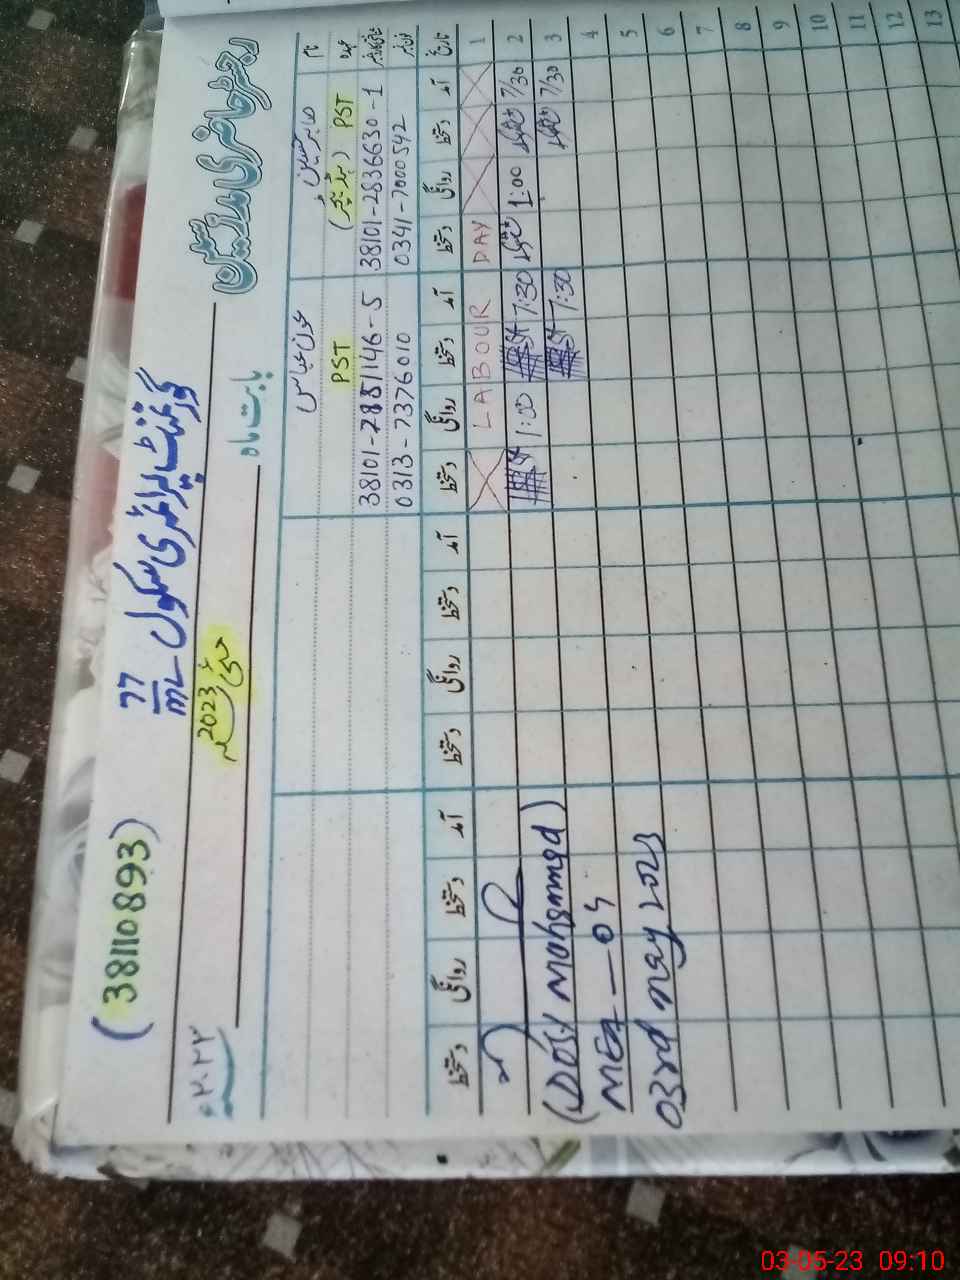 رجسٹر حاضری مدرسین
(38110893)
گورنمنٹ پرائمری سکول 77/ML
بابت ماہ
مئی 2023
نام
صابر حسین
عون عباس
عہدہ
(ہیڈ ٹیچر) PST
PST
شناختی کارڈ نمبر
38101-2836630-1
38101-7885146-5
فون نمبر
0341-7000542
0313-7376010
تاریخ آمد دستخط روانگی دستخط آمد دستخط روانگی دستخط آمد دستخط روانگی دستخط آمد دستخط روانگی دستخط
1 LABOUR DAY
2 7/30 1:00 7:30 1:00
3 7/30 7:30
(Dost Mohammad)
4
MEA — 04
5
03rd May 2023
6
7
8
9
10
11
12
13
03-05-23 09:10